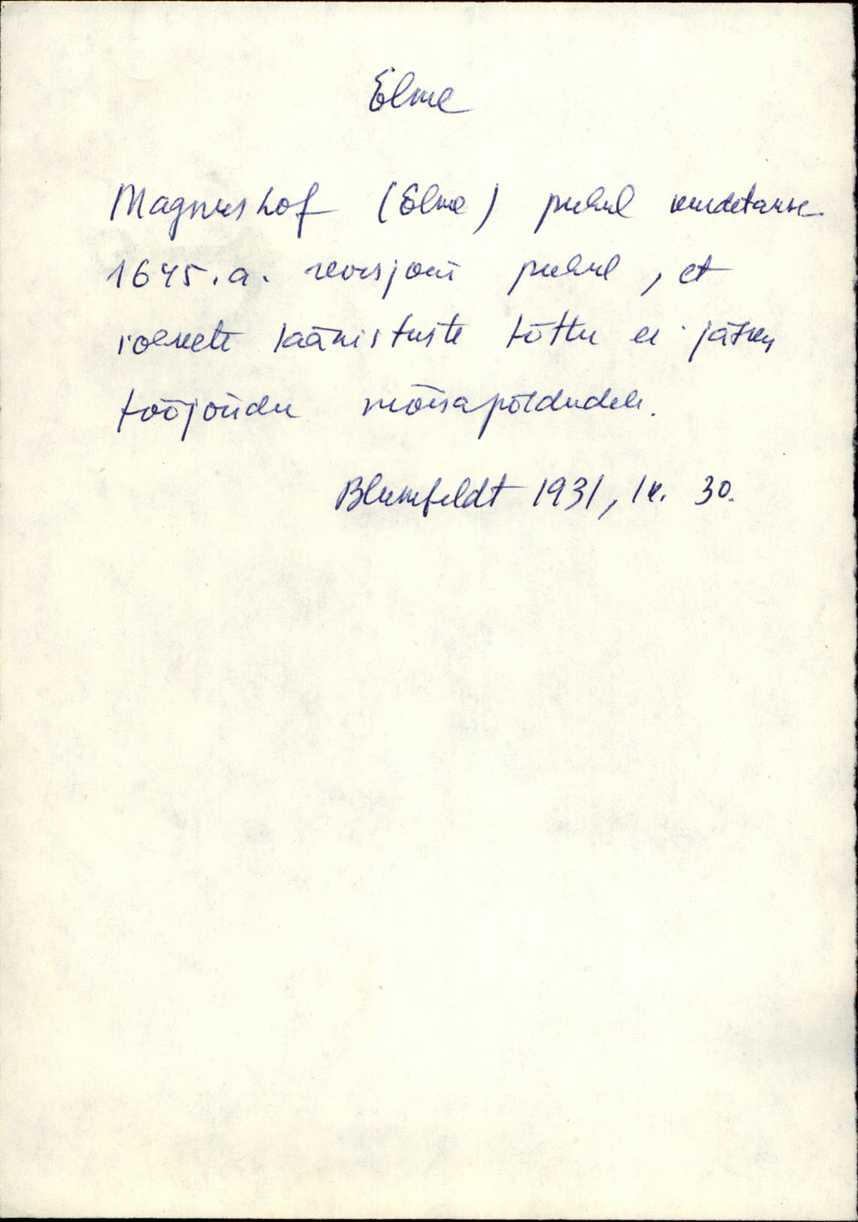 Elme
Magnushof (Elme) puhul
1645.a. revisjoni puhul, et
läänistuste tõttu ei jätku
tööjõudu mõisapõldudele.
Blumfeldt 1931, lk. 30.